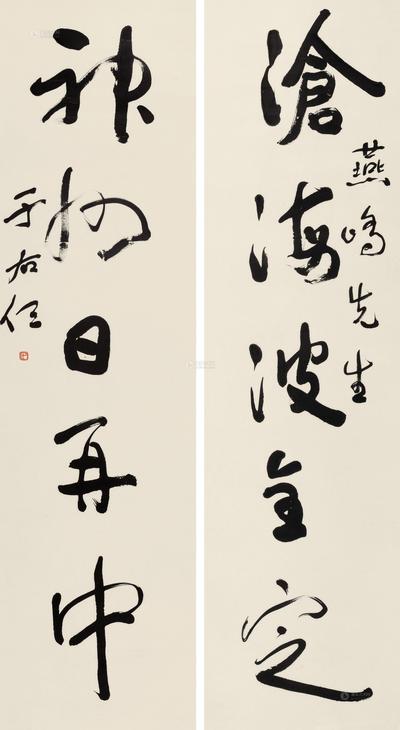 燕鳴先生
滄海波全定
神州日再中
于右任